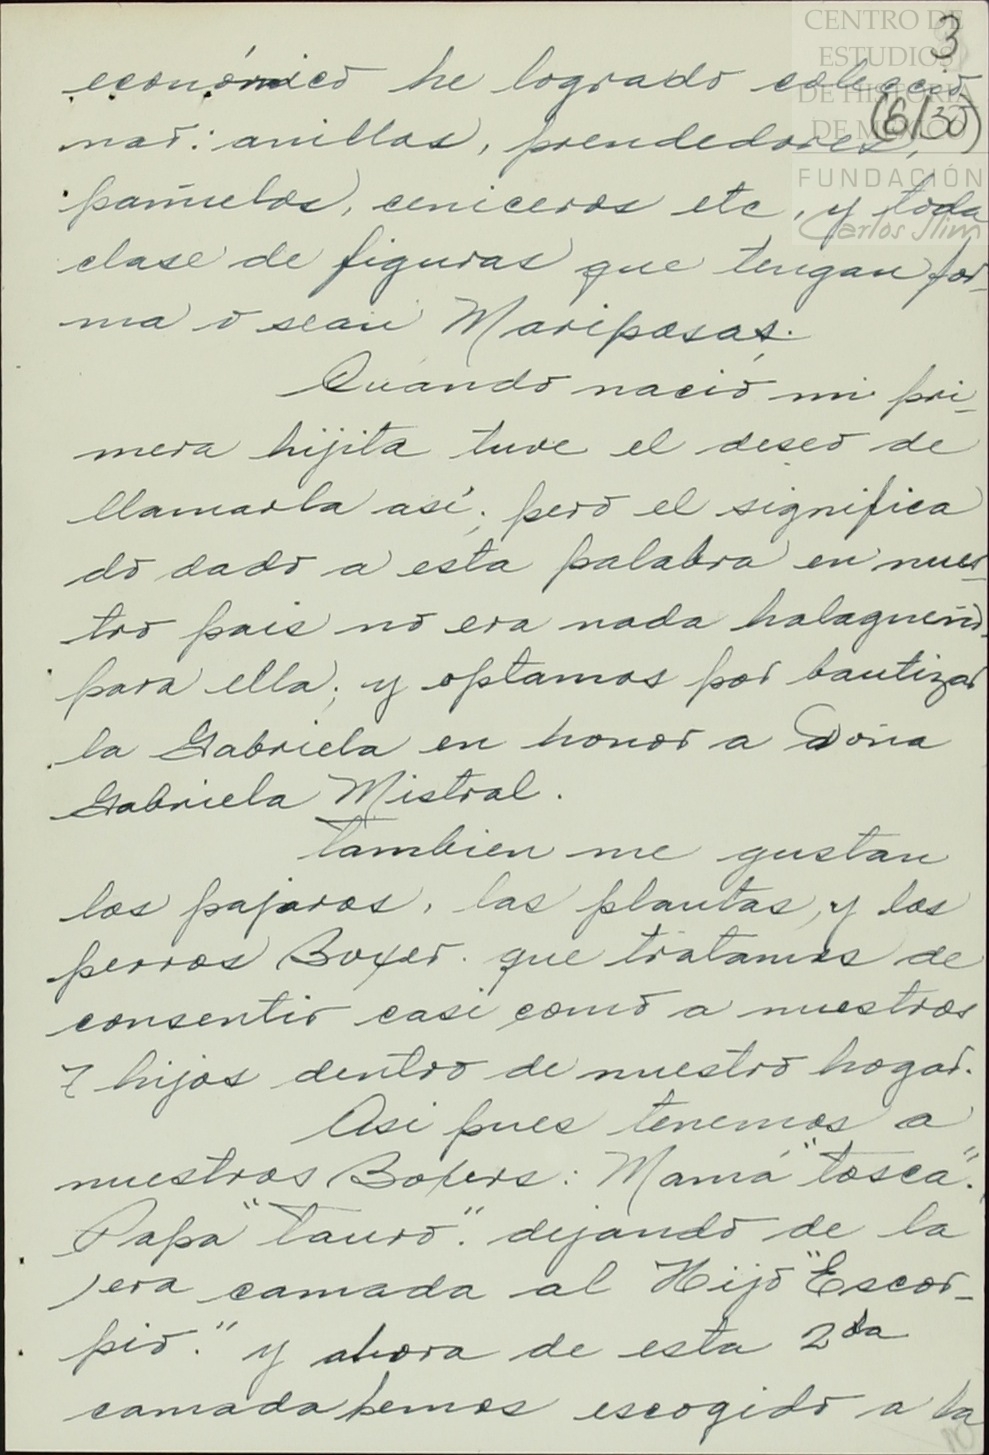 CENTRO DE
ESTUDIOS
DE HISTORIA
DE MÉXICO
FUNDACIÓN
Carlos Slim
3
(6/30)
económico he logrado coleccio
nar: anillos, prendedores,
pañuelos, ceniceros etc, y toda
clase de figuras que tengan for_
ma o sean Mariposas.
Cuando nació mi pri_
mera hijita tuve el deseo de
llamarla así; pero el significa
do dado a esta palabra en nues_
tro pais no era nada halagueño
para ella; y optamos por bautizar
la Gabriela en honor a Doña
Gabriela Mistral.
Tambien me gustan
los pajaros, las plantas, y los
perros Boxer. que tratamos de
consentir casi como a nuestros
7 hijos dentro de nuestro hogar.
Asi pues tenemos a
nuestros Boxers: Mamá "tosca".
Papa "Tauro". dejando de la
1era camada al Hijo "Escor_
pio." y ahora de esta 2da
camada hemos escogido a la